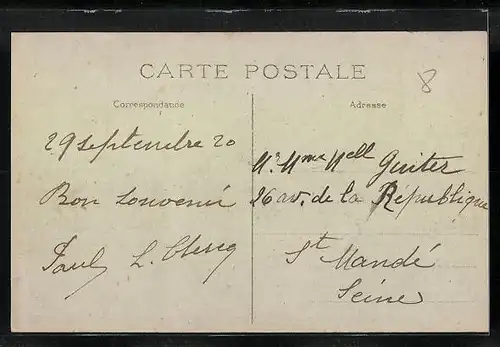 CARTE POSTALE
8
Correspondance
Adresse
29 septembre 20
Bon souvenir
Paul L. Clercq
Mr. Mme Mell Guiter
26 av. de la République
St Mandé
Seine